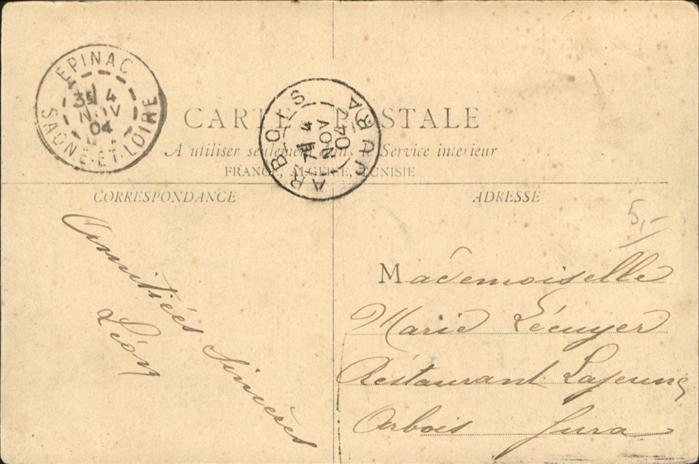 EPINAC
3E 4
NOV
04
SAÔNE-ET-LOIRE
ARBOIS
4
NOV
04
JURA
CARTE POSTALE
A utiliser seulement dans le Service intérieur
FRANCE, ALGERIE, TUNISIE
CORRESPONDANCE
ADRESSE
5,-
Amitiées Sincères
Léon
Mademoiselle
Marie Lécuyer
Réstaurant Lajeune
Arbois Jura